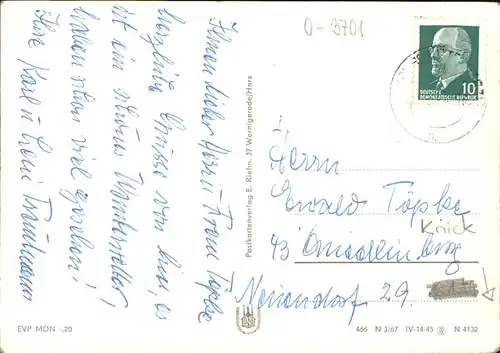 0-3701
Ihnen lieber Herr u. Frau Töpke
herzliche Grüsse von hier, es
ist ein schönes Wanderwetter,
haben schon viel gesehen!
Ihre Karl u. Leni
10
DEUTSCHE
DEMOKRATISCHE REPUBLIK
Postkartenverlag E. Riehn, 37 Wernigerode/Harz
Herrn
Ewald Töpke
Knick
43 Quedlinburg
Neuendorf 29.
EVP MDN -.20
466 N 3/67 IV-14-45 N 4132